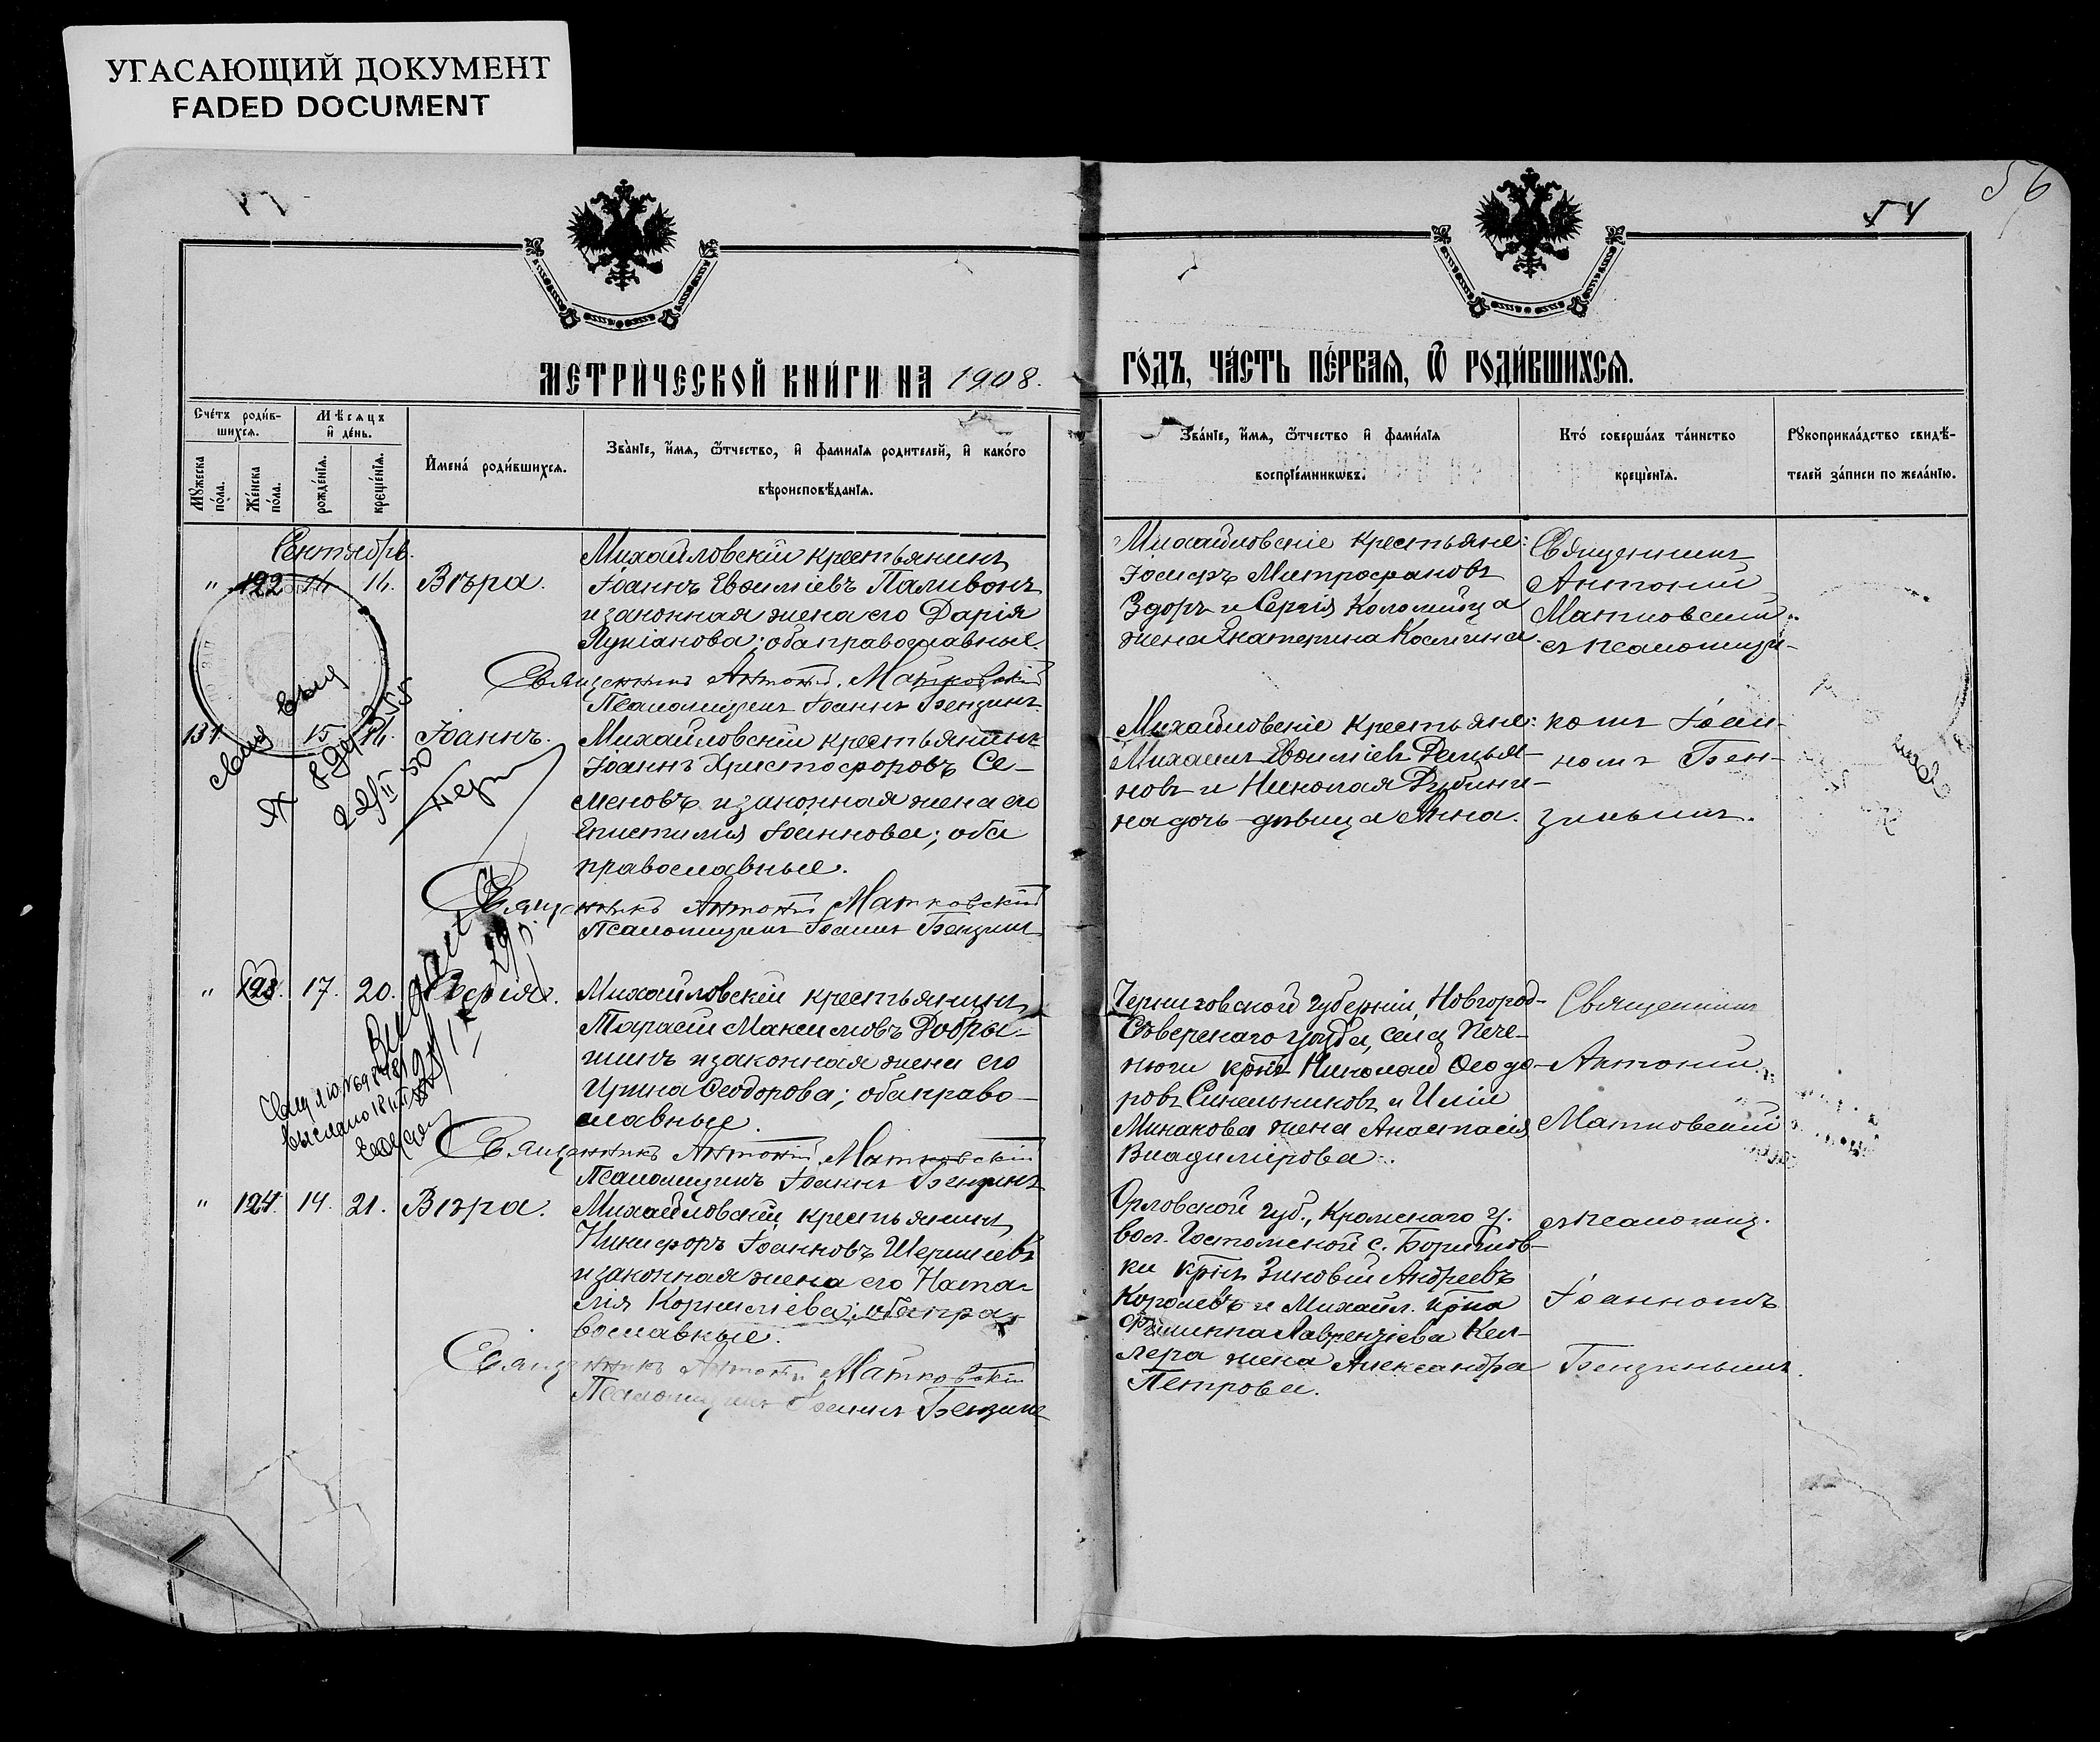 УГАСАЮЩИЙ ДОКУМЕНТ
FADED DOCUMENT
56
54
МЕТРИ́ЧЕСКОЙ КНИ́ГИ НА 1908.
ГО́ДЪ, ЧА́СТЬ ПЕ́РВАѦ, Ѿ РОДИ́ВШИХСѦ.
Сче́тъ роди́в-
шихсѧ.
Мѣ́сѧцъ
и҆ де́нь.
Мꙋ́жеска
по́ла.
Же́нска
по́ла.
рожде́нїѧ.
креще́нїѧ.
И҆мена̀ роди́вшихсѧ.
Зва́нїе, и҆́мѧ, ѻ҆́тчество, и҆ фами́лїѧ роди́телей, и҆ како́го
вѣроисповѣ́данїѧ.
Зва́нїе, и҆́мѧ, ѻ҆́тчество и҆ фами́лїѧ
воспрїе́мникѡвъ.
Кто̀ соверша́лъ та́инство
креще́нїѧ.
Рꙋкоприкла́дство свидѣ́-
телей за́писи по жела́нїю.
Сентябрь.
" 122 14 14. Вѣра.
Михайловскій крестьянинъ
Іоаннъ Евѳиміевъ Паливонъ
и законная жена его Дарія
Лукіанова; оба православные.
Священникъ Антоній Матковскій
Псаломщикъ Іоаннъ Бензинъ
Михайловскіе крестьяне:
Іосифъ Митрофановъ
Здоръ и Сергія Коломійца
жена Екатерина Космина.
Священникъ
Антоній
Матковскій
съ псаломщи-
131 15 14. Іоаннъ.
Михайловскій крестьянинъ
Іоаннъ Христофоровъ Се-
меновъ и законная жена его
Епистимія Іоаннова; оба
православные.
Священникъ Антоній Матковскій
Псаломщикъ Іоаннъ Бензинъ
Михайловскіе крестьяне:
Михаилъ Евѳиміевъ Демья-
новъ и Николая Дубини-
на дочь-дѣвица Анна.
комъ Іоан-
номъ Бен-
зинымъ.
" 123. 17. 20.
Михайловскій крестьянинъ
Тарасій Максимовъ Добры-
шинъ и законная жена его
Ирина Ѳеодорова; оба право-
славные.
Священникъ Антоній Матковскій
Псаломщикъ Іоаннъ Бензинъ
Черниговской губерніи, Новгород-
Сѣверскаго уѣзда, села Пече-
нюги кр-нъ Николай Ѳеодо-
ровъ Синельниковъ и Иліи
Минакова жена Анастасія
Владимірова.
Священникъ
Антоній
Матковскій
" 124. 14. 21. Вѣра.
Михайловскій крестьянинъ
Никифоръ Іоанновъ Шершневъ
и законная жена его Ната-
лія Корниліева; оба пра-
вославные.
Священникъ Антоній Матковскій
Псаломщикъ Іоаннъ Бензинъ
Орловской губ., Кромскаго у.
вол. Гостомской с. Борисов-
ки кр-нъ Зиновій Андреевъ
Королевъ и Михайл. кр-на
Филиппа Лаврентіева Кел-
лера жена Александра
Петрова.
съ псаломщ.
Іоанномъ
Бензинымъ.